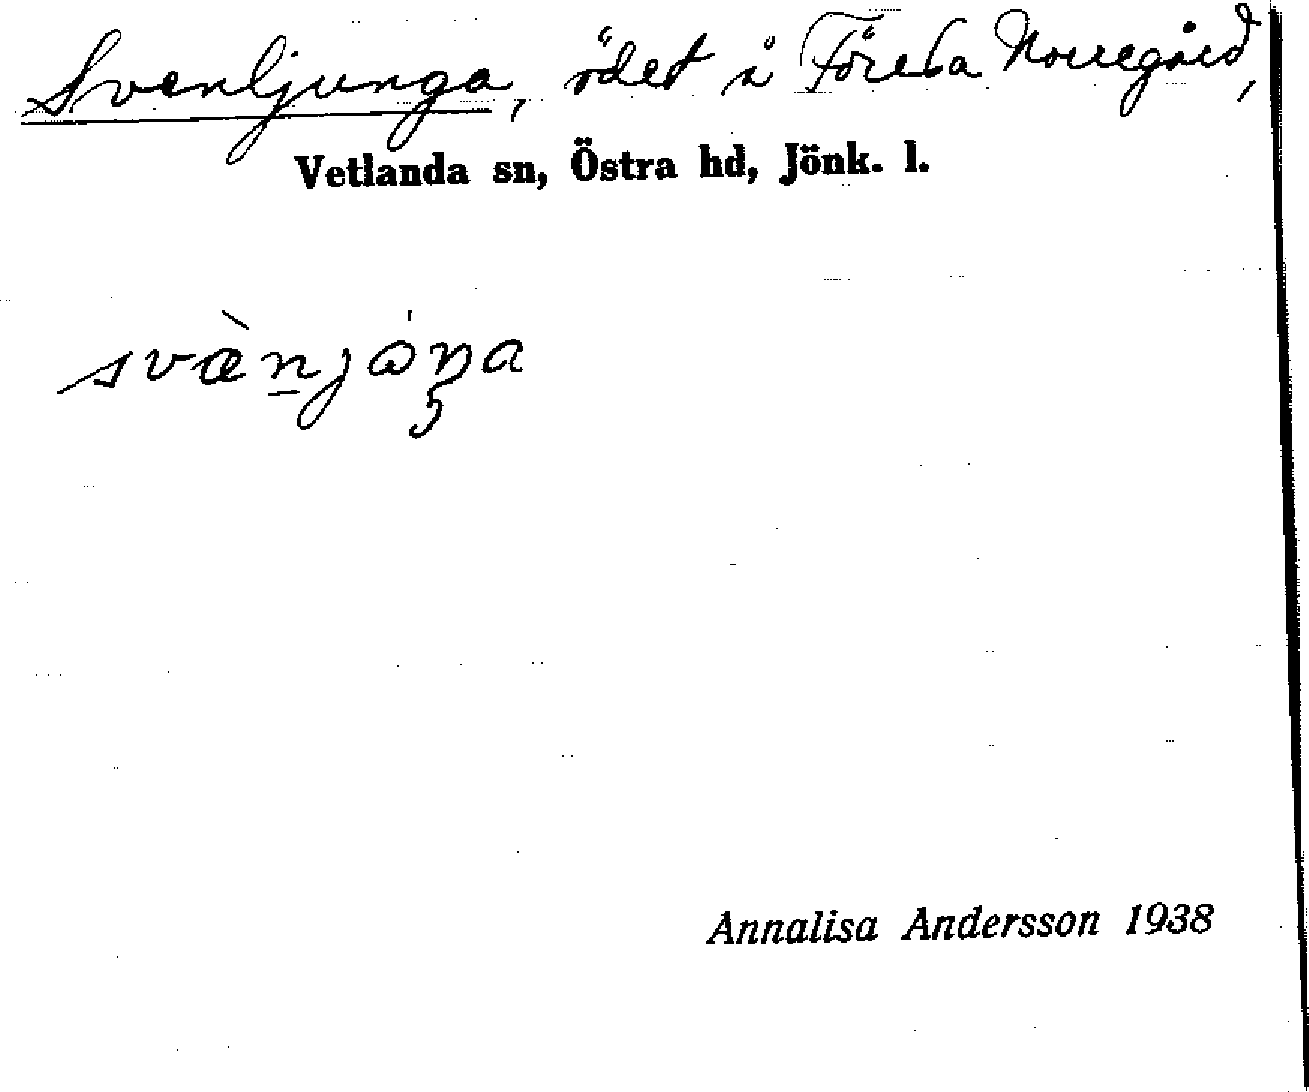 Svenljunga, ödet å Föreda Norregård,
Vetlanda sn, Östra hd, Jönk. l.
svæ̀n̲jɷ́ŋa
Annalisa Andersson 1938